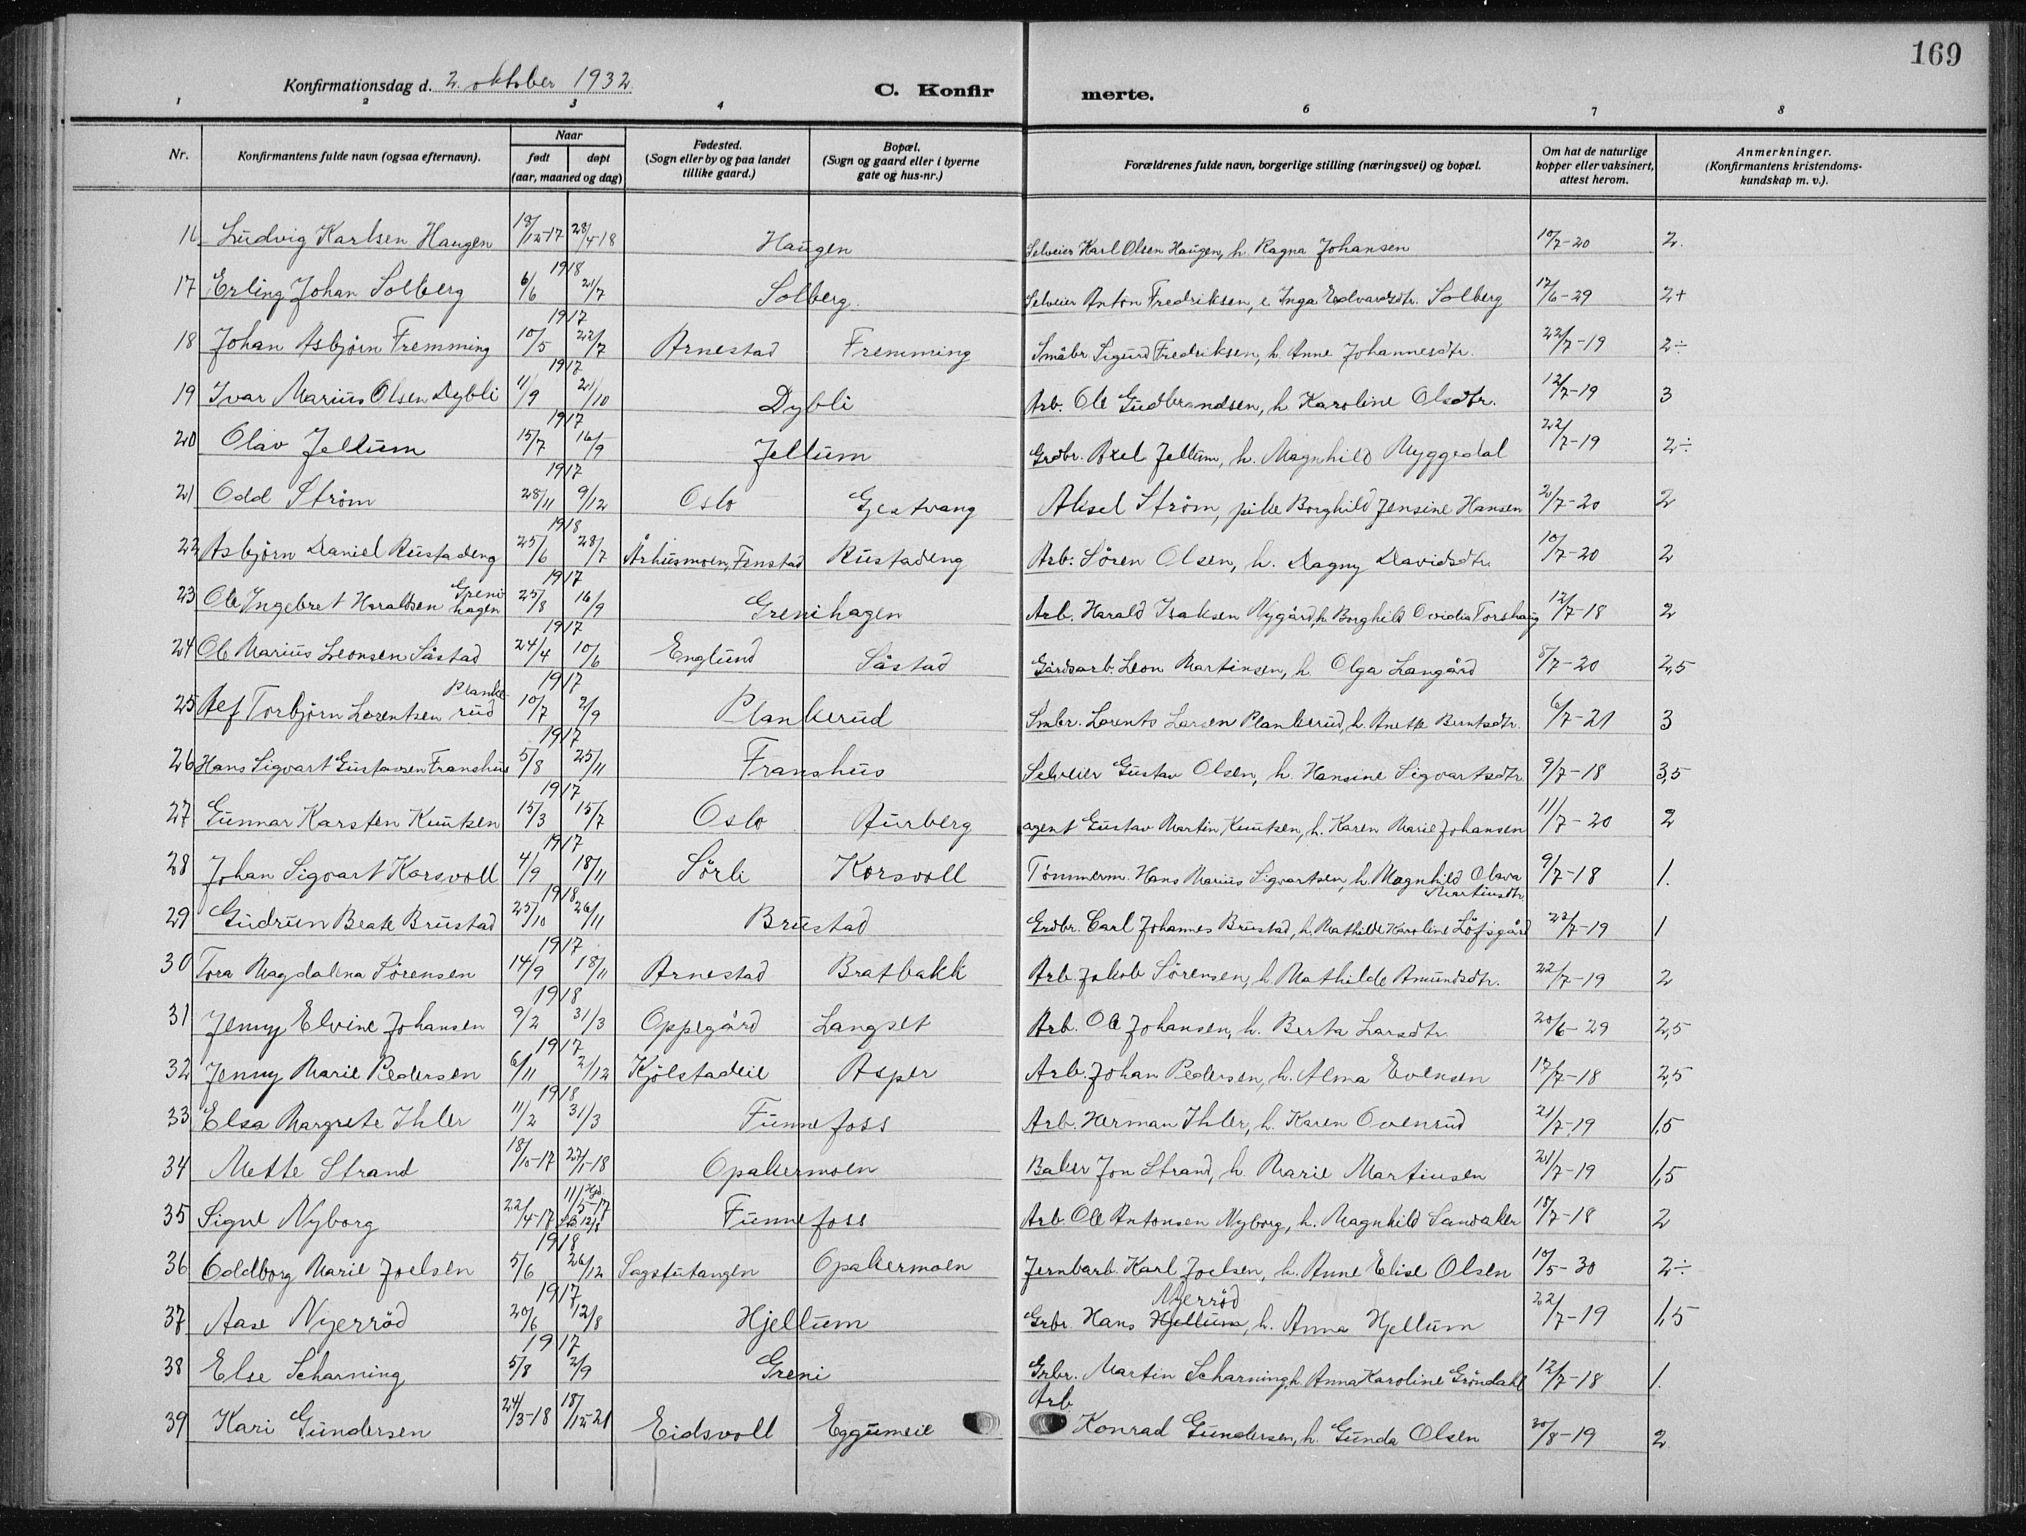 169
Konfirmationsdag d. 2. oktober 1932.
C. Konfirmerte.
1 2 3 4 6 7 8
Nr. Konfirmantens fulde navn (ogsaa efternavn). Naar født døpt (aar, maaned og dag) Fødested. (Sogn eller by og paa landet tillike gaard.) Bopæl. (Sogn og gaard eller i byerne gate og hus-nr.) Forældrenes fulde navn, borgerlige stilling (næringsvei) og bopæl. Om hat de naturlige kopper eller vaksinert, attest herom. Anmerkninger. (Konfirmantens kristendoms-kundskap m. v.).
16 Ludvig Karlsen Haugen 18/12-17 28/4-18 Haugen Selveier Karl Olsen Haugen, h. Ragna Johansen 10/7-20 2.
17 Erling Johan Solberg 1918 6/6 21/7 Solberg. Selveier Anton Fredriksen, e. Inga Edvardsdtr. Solberg 12/6-29 2+
18 Johan Asbjørn Fremming 1917 10/5 22/7 Arnestad Fremming Småbr. Sigurd Fredriksen, h. Anne Johannesdtr. 22/7-19 2÷
19 Ivar Marius Olsen Dybli 1917 11/9 21/10 Dybli Arb. Ole Gudbrandsen, h. Karoline Olsdtr. 12/7-19 3
20 Olav Jellum 1917 15/7 16/9 Jellum Grdbr. Axel Jellum, h. Magnhild Myggedal 22/7-19 2÷
21 Odd Strøm 1917 28/11 9/12 Oslo Gjestvang Aksel Strøm, pike Borghild Jensine Hansen 2/7-20 2
22 Asbjørn Daniel Rustadeng 1918 25/6 28/7 Århusmoen, Fenstad Rustadeng Arb. Sören Olsen, h. Dagny Davidsdtr. 10/7-20 2
23 Ole Ingebret Haraldsen Grenihagen 1917 25/8 16/9 Grenihagen Arb. Harald Isaksen Nygård, h. Borghild Ovidia Torshaug 12/7-18 2
24 Ole Marius Leonsen Såstad 1917 24/4 10/6 Englund Såstad Gårdsarb. Leon Martinsen, h. Olga Langård 8/7-20 2,5
25 Alf Torbjørn Lorentsen Plankerud 1917 10/7 2/9 Plankerud Smbr. Lorents Larsen Plankerud, h. Anette Berntsdtr. 6/7-21 3
26 Hans Sigvart Gustavsen Franshus 1917 5/8 25/11 Franshus Selveier Gustav Olsen, h. Hansine Sigvartsdtr. 9/7-18 3,5
27 Gunnar Karsten Knutsen 1917 15/3 15/7 Oslo Aurberg agent Gustav Martin Knutsen, h. Karen Marie Johansen 11/7-20 2
28 Johan Sigvart Korsvoll 1917 4/9 18/11 Sörli Korsvoll Tømmerm. Hans Marius Sigvartsen, h. Magnhild Olava Martinsdtr. 9/7-18 1.
29 Gudrun Beate Brustad 1918 25/10 26/11 Brustad Grdbr. Carl Johannes Brustad, h. Mathilde Karoline Löfsgård 22/7-19 1
30 Tora Magdalena Sörensen 1917 14/9 18/11 Arnestad Bratbakk Arb. Jakob Sörensen, h. Mathilde Amundsdtr. 22/7-19 2
31 Jenny Elvine Johansen 1918 9/2 31/3 Oppegård Langset Arb. Ole Johansen, h. Berta Larsdtr. 20/6-29 2,5
32 Jenny Marie Pedersen 1917 6/11 2/12 Kjölstadeie Asper Arb. Johan Pedersen, h. Alma Evensen 17/7-18 2,5
33 Elsa Margrete Ihler 1918 11/2 31/3 Funnefoss Arb. Herman Ihler, h. Karen Ovenrud 21/7-19 1,5
34 Mette Strand 18/10-17 27/1-18 Opakermoen Baker Jon Strand, h. Marie Martinsen 21/7-19 1,5
35 Signe Nyborg 22/4-17 11/5-17 Funnefoss Arb. Ole Antonsen Nyborg, h. Magnhild Sandaker 18/7-18 2
36 Oddborg Marie Joelsen 1918 5/6 26/12 Sagstutangen Opakermoen Jernbarb. Karl Joelsen, h. Anne Elise Olsen 10/5-30 2÷
37 Aase Nyerröd 1917 20/6 12/8 Hjellum Grbr. Hans Hjellum Nyerröd, h. Anna Hjellum 22/7-19 1,5
38 Else Scharning 1917 5/8 2/9 Greni Grbr. Martin Scharning, h. Anna Karoline Gröndahl 12/7-18 1.
39 Kari Gundersen 24/3-18 18/12-21 Eidsvoll Eggumeie Arb. Konrad Gundersen, h. Gunda Olsen 30/8-19 2